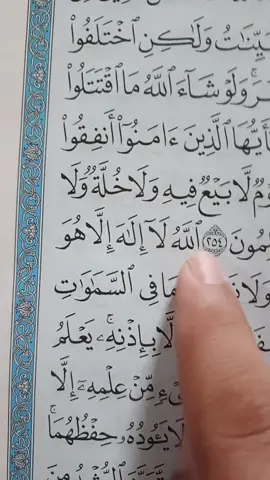 وَلَٰكِنِ ٱخْتَلَفُوا۟
وَلَوْ شَآءَ ٱللَّهُ مَا ٱقْتَتَلُوا۟
ٱلَّذِينَ ءَامَنُوٓا۟ أَنفِقُوا۟
لَّا بَيْعٌ فِيهِ وَلَا خُلَّةٌ وَلَا
٢٥٤ ٱللَّهُ لَآ إِلَٰهَ إِلَّا هُوَ
فِى ٱلسَّمَٰوَٰتِ
بِإِذْنِهِۦ ۚ يَعْلَمُ
مِّنْ عِلْمِهِۦٓ إِلَّا
يَـُٔودُهُۥ حِفْظُهُمَا ۚ